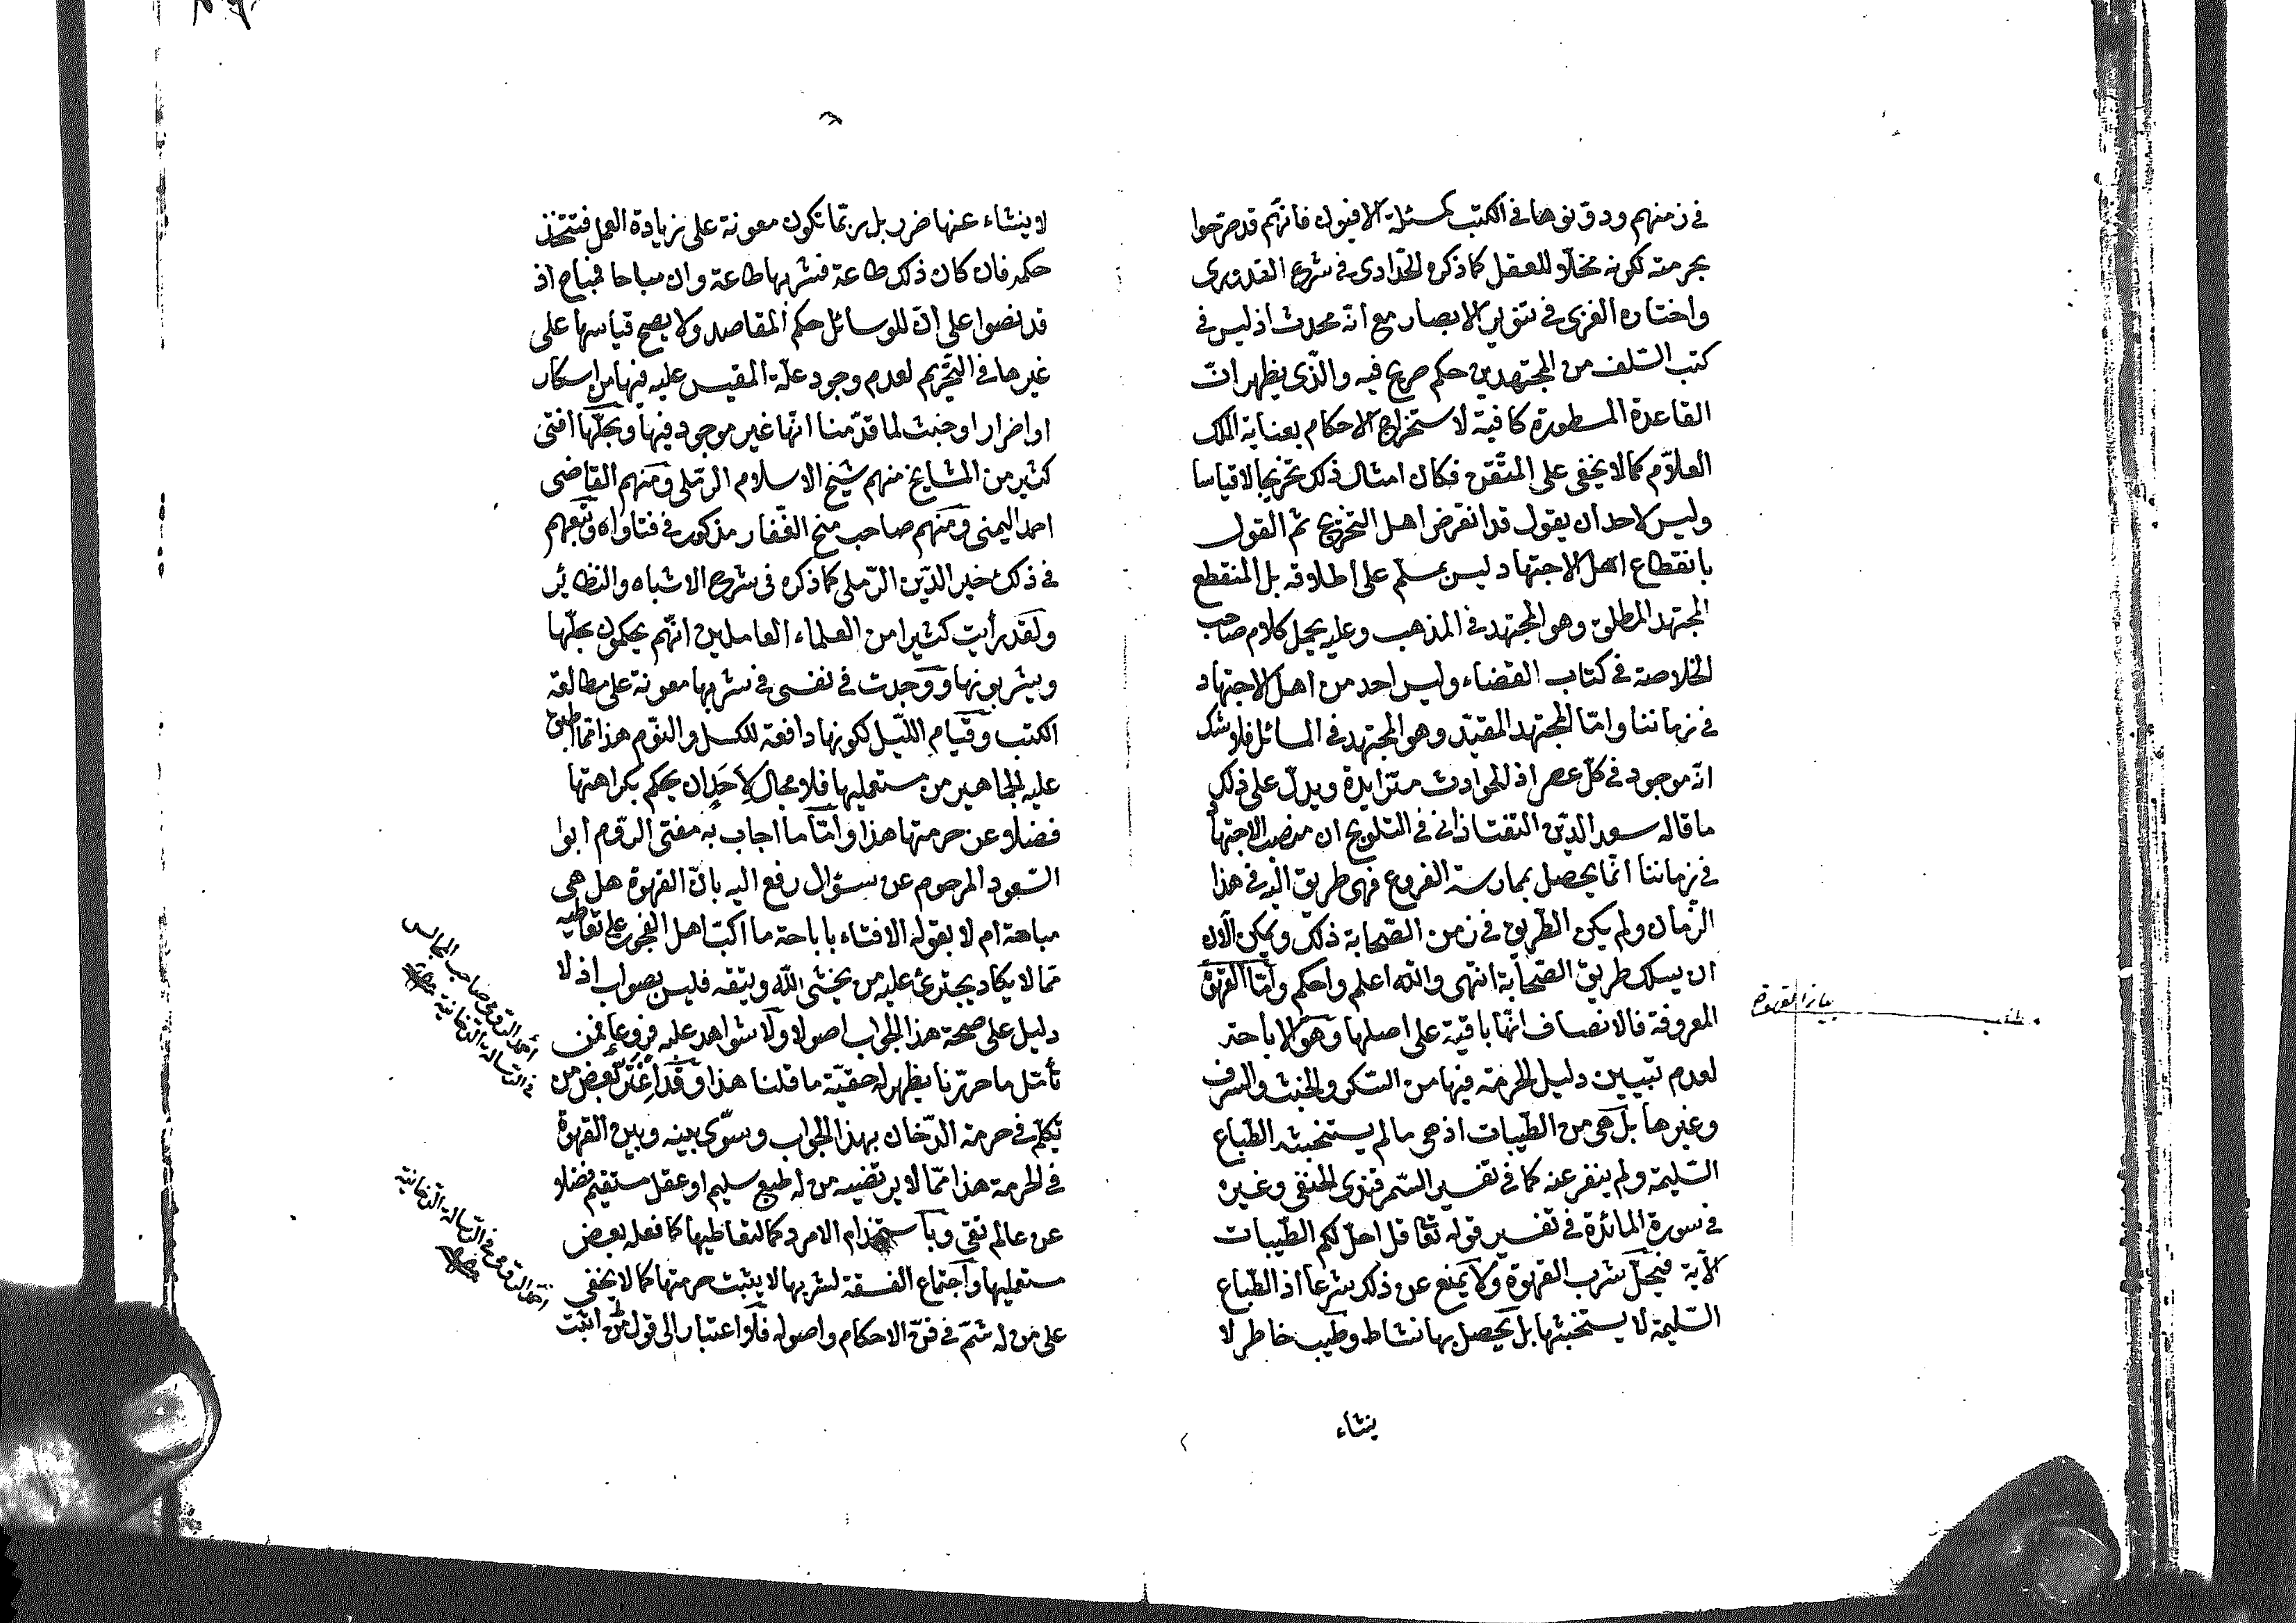 في زمنهم ودوّنوها في الكتب كمسئلة الافيون فانّهم قد صرّحوا
بحرمته لكونه مخلّا للعقل كما ذكره الحدّادى في شرح القدورى
واختاره الغزى في تنوير الابصار مع انّه محدث اذ ليس في
كتب السّلف من المجتهدين حكم صريح فيه والّذى يظهر انّ
القاعدة المسطورة كافية لاستخراج الاحكام بعناية الملك
العلاّم كما لا يخفى على المتقن فكان امثال ذلك تخريجا لا قياسا
وليس لاحد ان يقول قد انقرض اهل التخريج ثم القول
بانقطاع اهل الاجتهاد ليس بمسلّم على اطلاقه بل المنقطع
المجتهد المطلق وهو المجتهد في المذهب وعليه يحمل كلام صاحب
الخلاصة في كتاب القضاء وليس احد من اهل الاجتهاد
في زماننا وامّا المجتهد المقيّد وهو المجتهد في المسائل فلا شك
انّه موجود في كلّ عصر اذ الحوادث متزايدة ويدلّ على ذلك
ما قاله سعد الدّين التفتازانى في التلويح ان منصب الاجتهاد
في زماننا انّما يحصل بممارسة الفروع فهى طريق اليه في هذا
الزّمان ولم يكن الطّريق في زمن الصّحابة ذلك ويمكن الآن
ان يسلك طريق الصّحابة انتهى والله اعلم واحكم وامّا القهوة
المعروفة فالانصاف انّها باقية على اصلها وهو الاباحة
لعدم تبيين دليل الحرمة فيها من السّكر والخبث والسرف
وغيرها بل هى من الطّيبات اذ هى ما لم يستخبثه الطّباع
السّليمة ولم ينفر عنه كما في تفسير السّمرقندى الحنفى وغيره
في سورة المائدة في تفسير قوله تعا قل احلّ لكم الطّيبات
الآية فيحلّ شرب القهوة ولا يمنع عن ذلك شرعا اذ الطّباع
السّليمة لا يستخبثها بل يحصل بها نشاط وطيب خاطر لا
ينشاء
مطلب بيان القهوة
لا ينشاء عنها ضرر بل ربّما تكون معونة على زيادة العمل فتتّخذ
حكمه فان كان ذلك طاعة فشربها طاعة وان مباحا فمباح اذ
قد نصوا على انّ للوسائل حكم المقاصد ولا يصح قياسها على
غيرها في التّحريم لعدم وجود علّة المقيس عليه فيها من اسكار
او اضرار او خبث لما قدّمنا انّها غير موجود فيها وبحلّها افتى
كثير من المشايخ منهم شيخ الاسلام الرّملى ومنهم القاضى
احمد اليمنى ومنهم صاحب منح الغّفار مذكور في فتاواه وتبعهم
في ذلك خير الدّين الرّملى كما ذكره في شرح الاشباه والنظائر
ولقد رأيت كثيرا من العلماء العاملين انّهم يحكمون بحلّها
ويشربونها ووجدت في نفسى في شربها معونة على مطالعة
الكتب وقيام اللّيل لكونها دافعة للكسل والنّوم هذا ممّا اطبق
عليه الجماهير من مستعمليها فلا مجال لِأَحَدٍ ان يحكم بكراهتها
فضلا عن حرمتها هذا وامّا ما اجاب به مفتى الرّوم ابوا
السّعود المرحوم عن سؤال رفع اليه بانّ القهوة هل هى
مباحة ام لا بقوله الافتاء باباحة ما اكبّ اهل الفجور على تعاطيه
ممّا لا يكاد يجترئ عليه من يخشى الله ويتقه فليس بصواب اذ لا
دليل على صحة هذا الجواب اصولا ولا شواهد عليه فروعا فمن
تأمّل ما حرّرنا يظهر له حقيّة ما قلنا هذا وقد اغترّ بعض من
تكلّم في حرمة الدّخان بهذا الجواب وسوّى بينه وبين القهوة
في الحرمة هذا ممّا لا يرتضيه من له طبع سليم او عقل مستقيم فضلا
عن عالم تقى وبآستخدام الامرد كما لتعاطيها كما فعله بعض
مستعمليها واجتماع الفسقة لشربها لا يثبت حرمتها كما لا يخفى
على من له شمّ في فنّ الاحكام واصوله فلا اعتبار الى قول من اثبت
احمد الرّومى صاحب المجالس
في الرّسالة الدّخانية
احمد الرّومى في الرّسالة الدّخانية